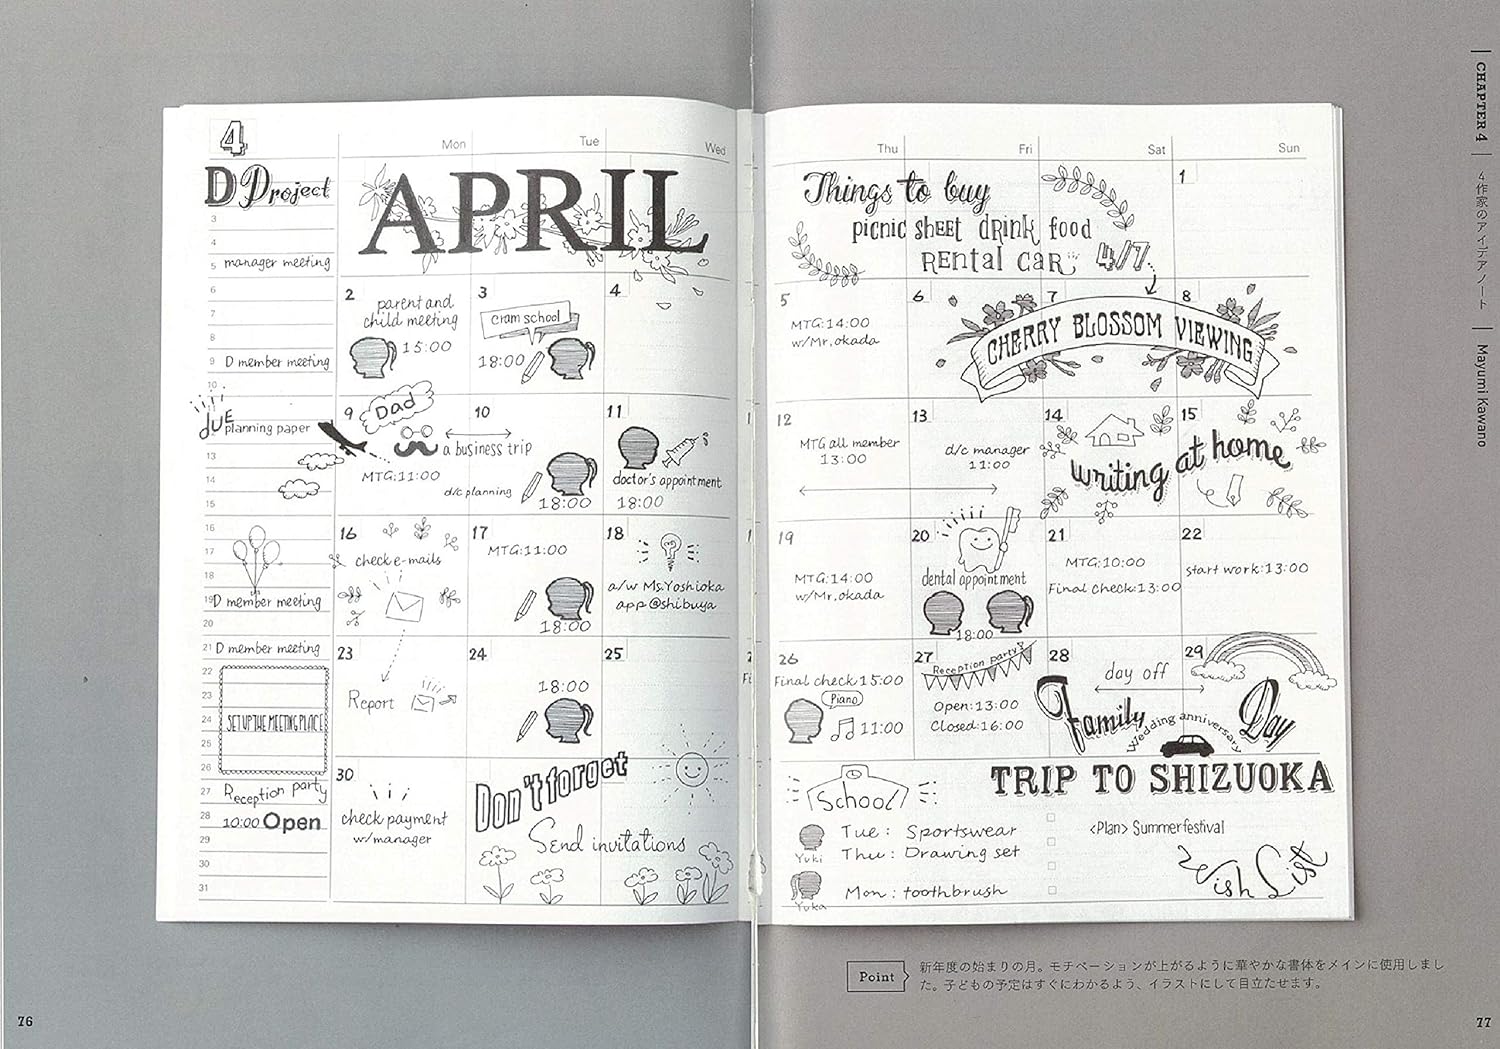 4
D Project
3
4
5 manager meeting
6
7
8
9 D member meeting
10
due
planning paper
13
14
15
16
17
18
19 D member meeting
20
21 D member meeting
22
23
24 SET UP THE MEETING PLACE
25
26
27 Reception party
28 10:00 Open
29
30
31
Mon Tue Wed
APRIL
2 parent and
child meeting
15:00
3 cram school
18:00
4
9 Dad
a business trip
MTG:11:00
10
d/c planning
18:00
11
doctor's appointment
18:00
16
check e-mails
17
MTG:11:00
18:00
18
a/w Ms.Yoshioka
app@shibuya
23
Report
24
18:00
25
30
check payment
w/manager
Don't forget
Send invitations
Thu Fri Sat Sun
Things to buy
picnic sheet drink food
Rental car 4/7
1
5
MTG:14:00
w/Mr.okada
6
7
8
CHERRY BLOSSOM VIEWING
12
MTG all member
13:00
13
d/c manager
11:00
14
15
writing at home
19
MTG:14:00
w/Mr.okada
20
dental appointment
18:00
21
MTG:10:00
Final check:13:00
22
start work:13:00
26
Final check:15:00
Piano
11:00
27
Reception party's
Open:13:00
Closed:16:00
28
day off
29
Family Day
Wedding anniversary
School
Yuki
Tue: Sportswear
Thu: Drawing set
Yuka
Mon: toothbrush
TRIP TO SHIZUOKA
<Plan> Summer festival
Wish List
CHAPTER 4
4作家のアイデアノート
Mayumi Kawano
Point
新年度の始まりの月。モチベーションが上がるように華やかな書体をメインに使用しまし
た。子どもの予定はすぐにわかるよう、イラストにして目立たせます。
76
77